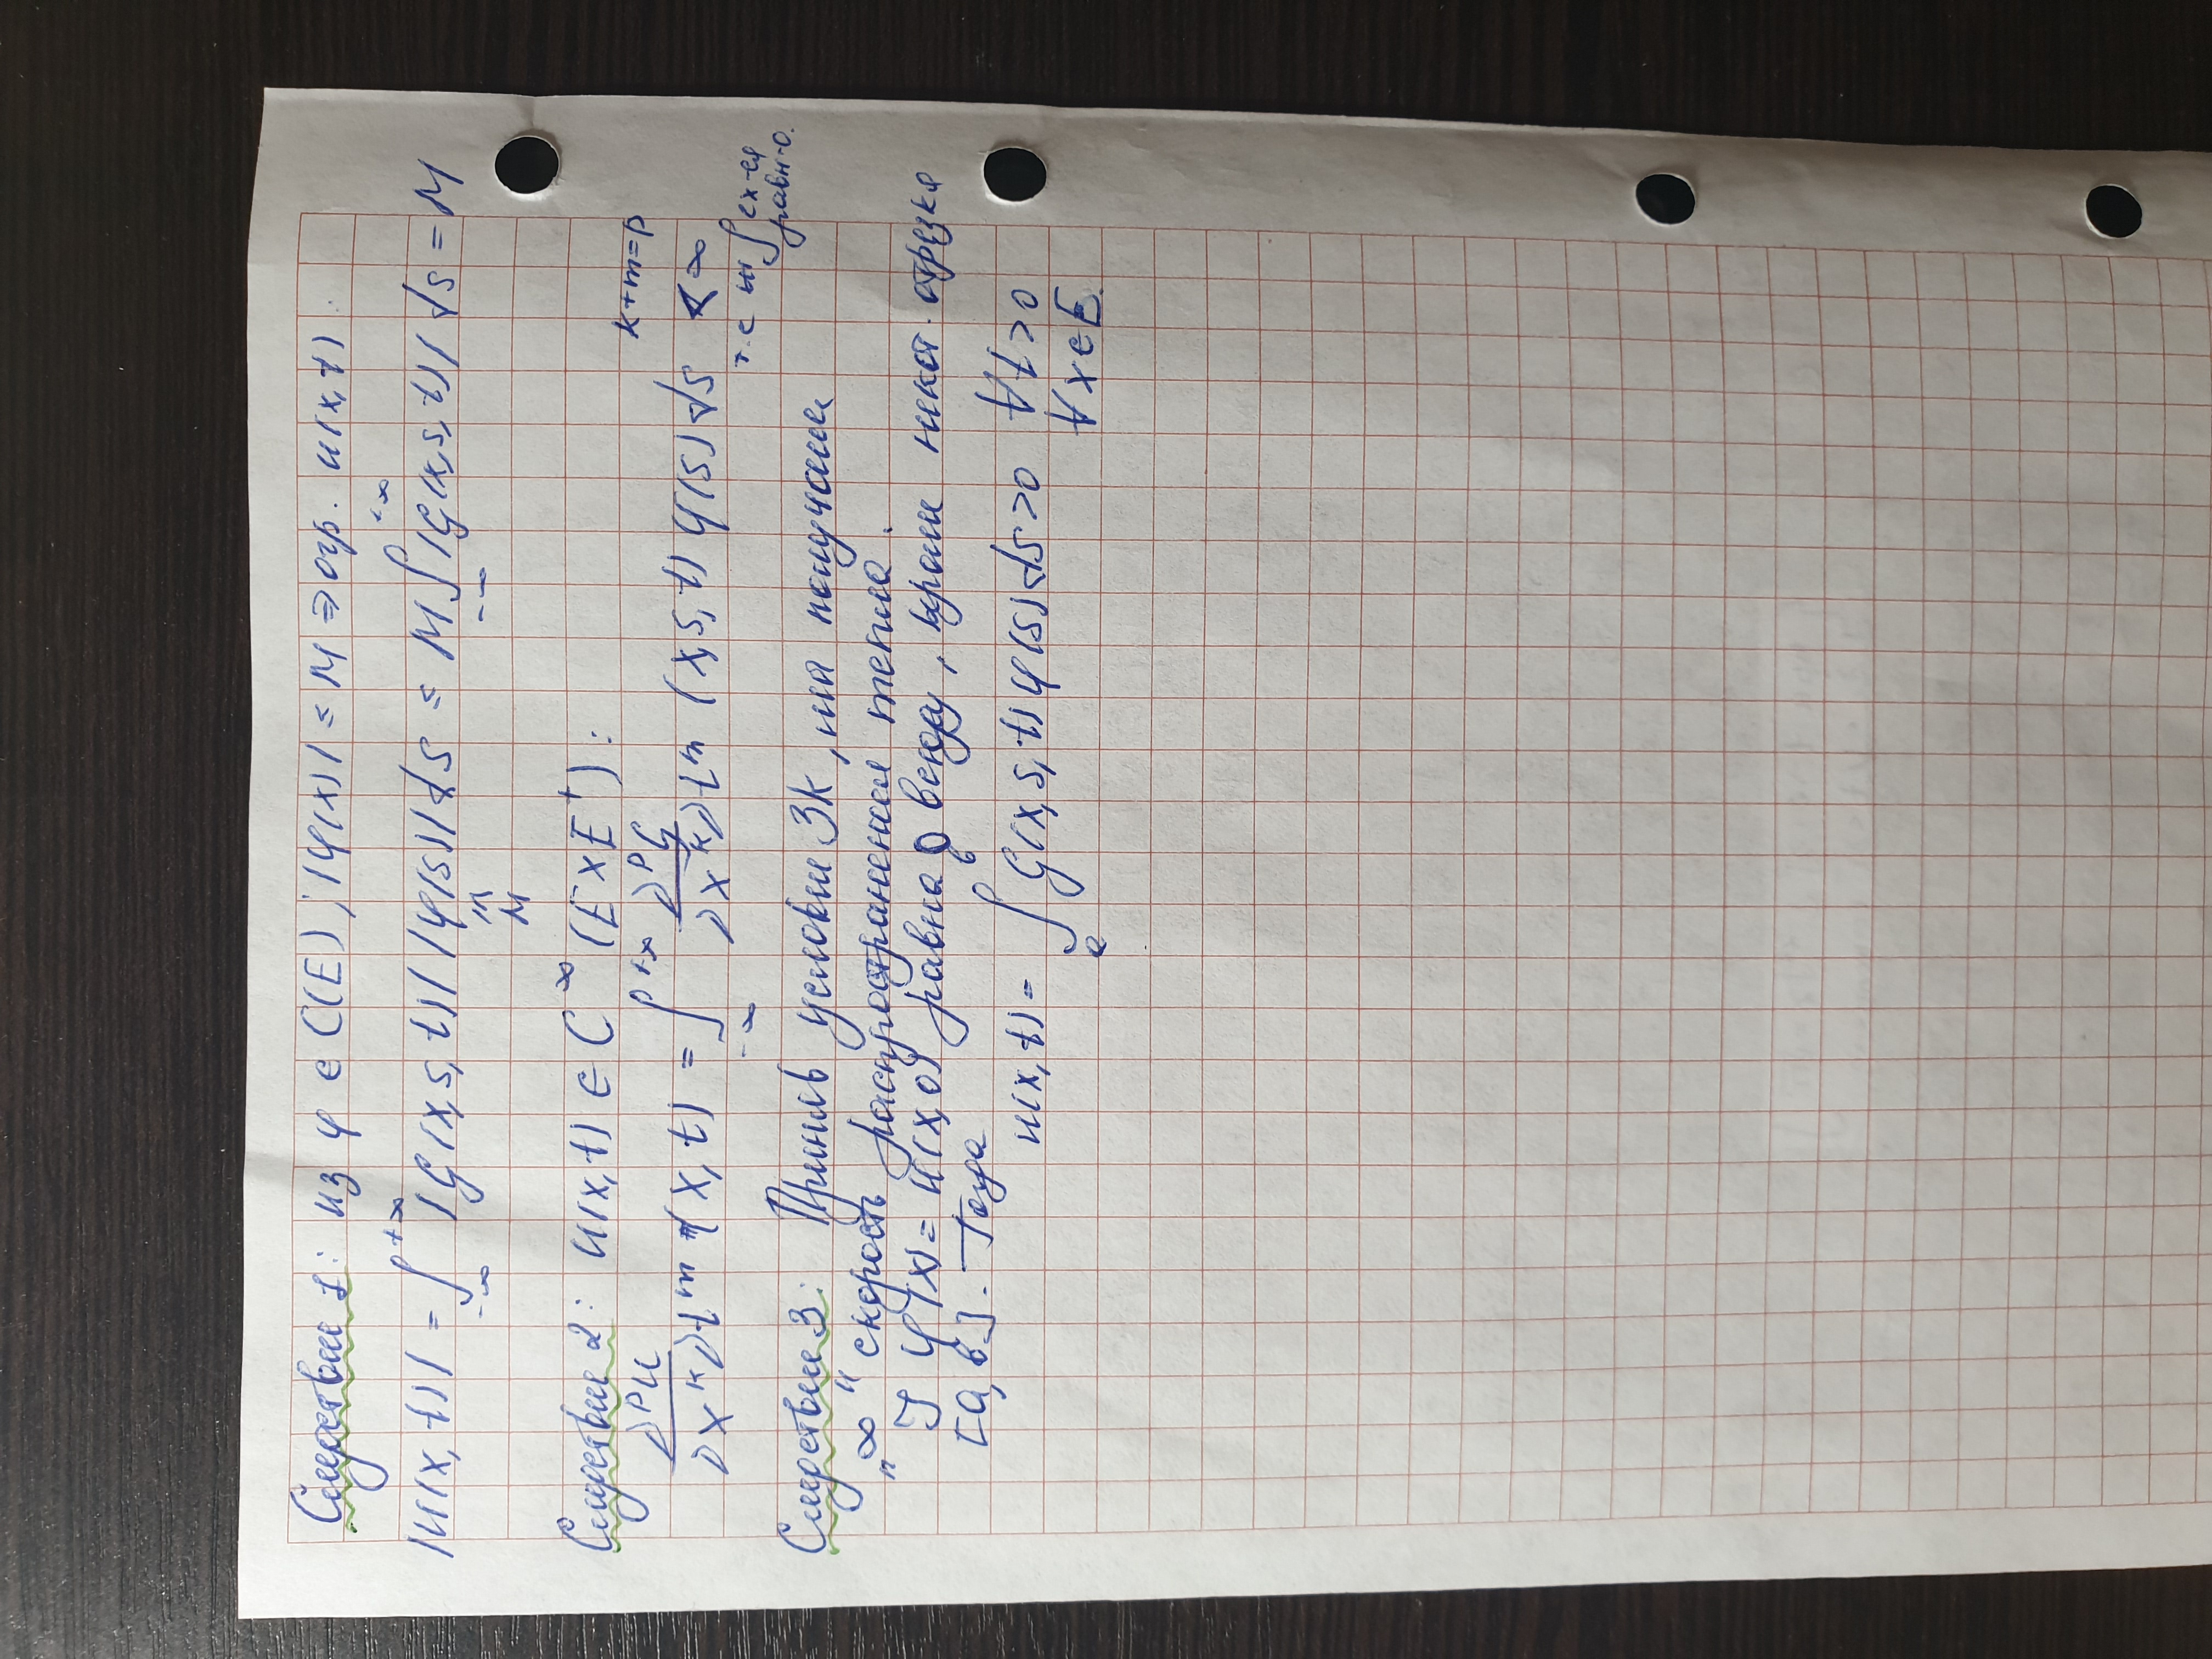 Следствие 1: из φ ∈ C(E), |φ(x)| ≤ M ⇒ огр. u(x,t).
|u(x,t)| = ∫_{-∞}^{+∞} |G(x,s,t)| |φ(s)| ds = M ∫_{-∞}^{+∞} |G(x,s,t)| ds = M
M
Следствие 2: u(x,t) ∈ C^∞ (E×E⁺):
k+m=p
∂^p u / ∂x^k ∂t^m (x,t) = ∫_{-∞}^{+∞} ∂^p G / ∂x^k ∂t^m (x,s,t) φ(s) ds < ∞
т.е ∫ сх-ся равн-о.
Следствие 3: Приняв условия ЗК, мы получаем
"∞" скорость распространения тепла.
φ(x) = u(x,0) равна 0 всюду, кроме некот. отрезка
[a,b]. Тогда
u(x,t) = ∫_a^b G(x,s,t) φ(s) ds > 0 ∀t>0
∀x∈E